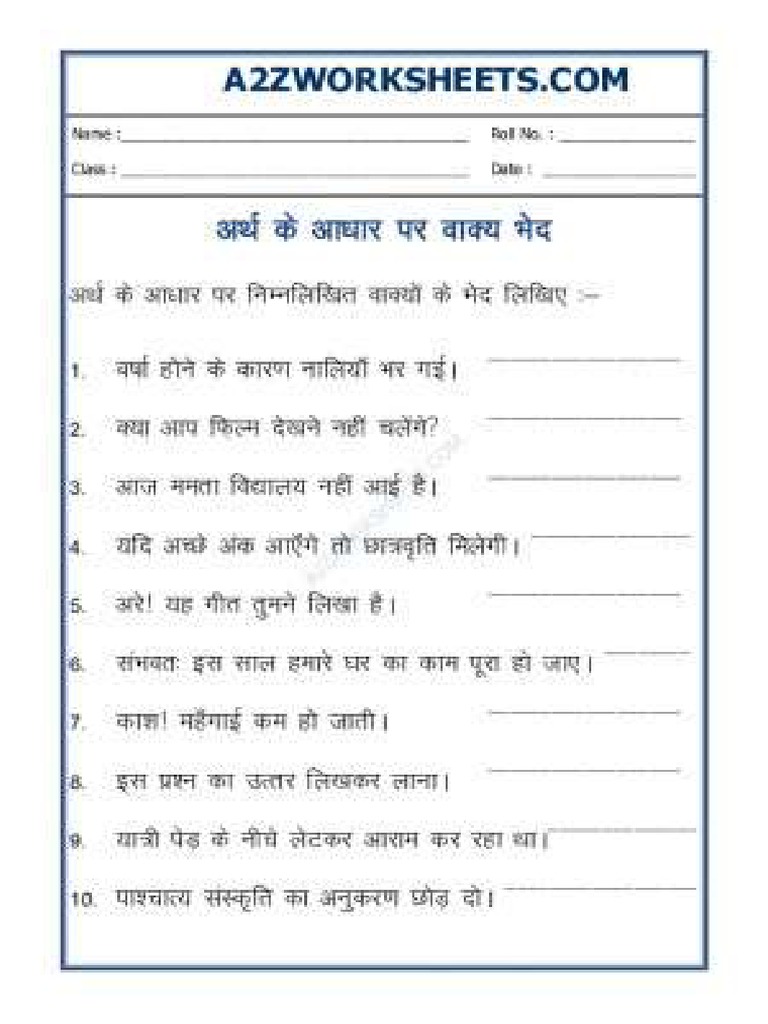 A2ZWORKSHEETS.COM
Name : Roll No. :
Class : Date :
अर्थ के आधार पर वाक्य भेद
अर्थ के आधार पर निम्नलिखित वाक्यों के भेद लिखिए :–
1. वर्षा होने के कारण नालियाँ भर गई।
2. क्या आप फिल्म देखने नहीं चलेंगे?
3. आज ममता विद्यालय नहीं आई है।
4. यदि अच्छे अंक आएँगे तो छात्रवृति मिलेगी।
5. अरे! यह गीत तुमने लिखा है।
6. संभवतः इस साल हमारे घर का काम पूरा हो जाए।
7. काश! महँगाई कम हो जाती।
8. इस प्रश्न का उत्तर लिखकर लाना।
9. यात्री पेड़ के नीचे लेटकर आराम कर रहा था।
10. पाश्चात्य संस्कृति का अनुकरण छोड़ दो।